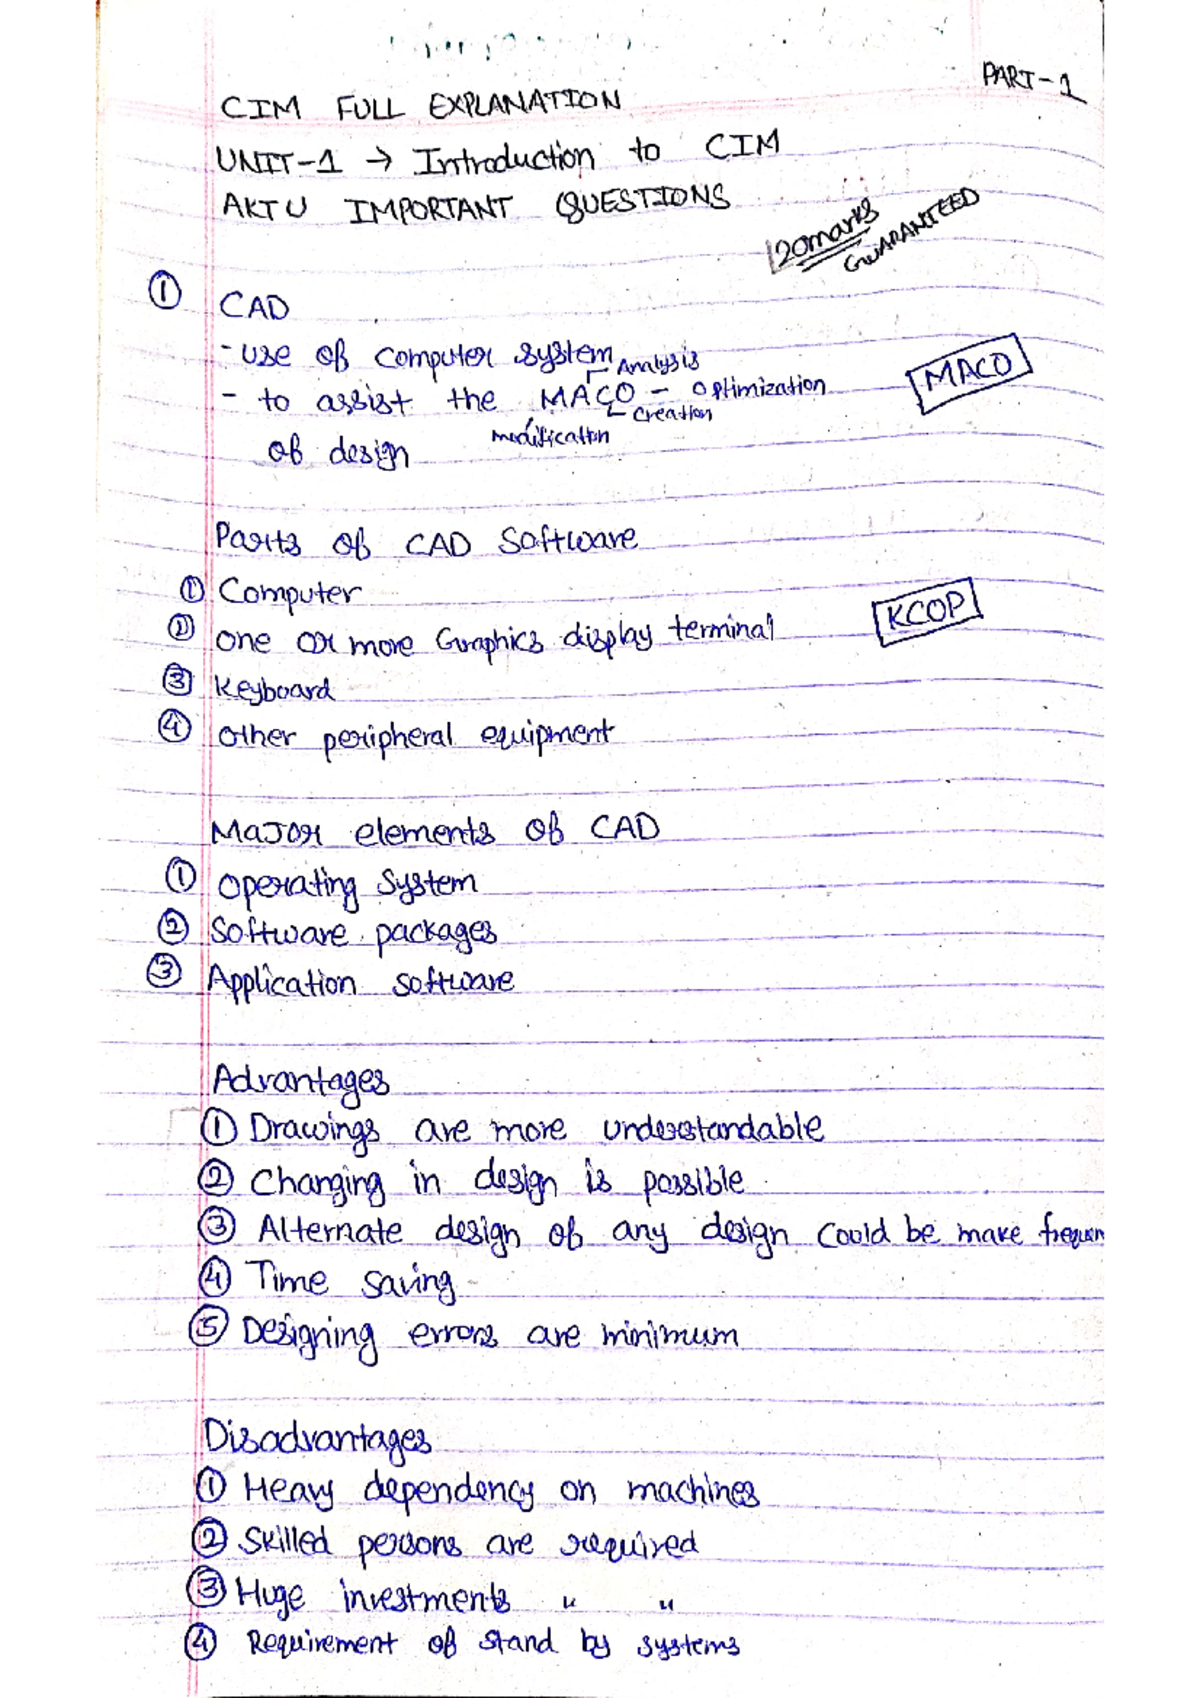 PART-1
CIM FULL EXPLANATION
UNIT-1 → Introduction to CIM
AKTU IMPORTANT QUESTIONS
20marks
GUARANTEED
① CAD
- use of computer system
Analysis
- to assist the MACO - Optimization
Creation
modification
of design
MACO
Parts of CAD Software
① Computer
② one or more Graphics display terminal
KCOP
③ Keyboard
④ other peripheral equipment
Major elements of CAD
① Operating System
② Software packages
③ Application software
Advantages
① Drawings are more understandable
② Changing in design is possible
③ Alternate design of any design could be make frequen
④ Time saving
⑤ Designing errors are minimum
Disadvantages
① Heavy dependency on machines
② Skilled persons are required
③ Huge investments " "
④ Requirement of stand by systems